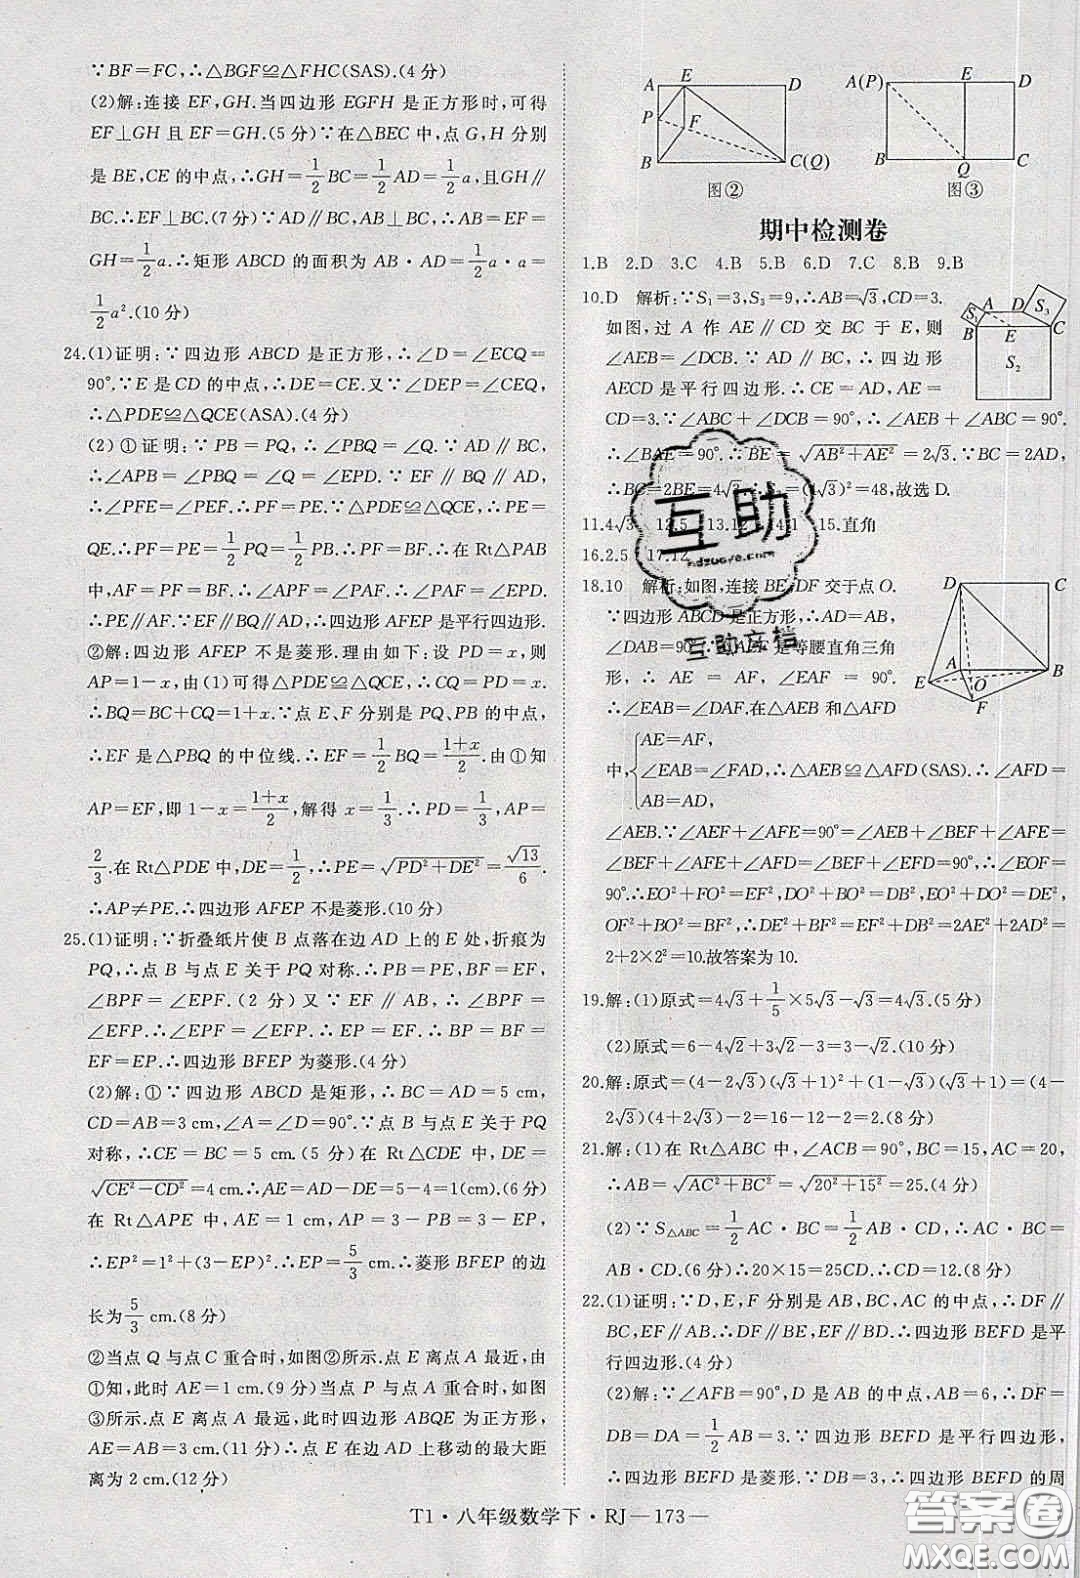 ∵BF=FC,∴△BGF≌△FHC(SAS).(4分)
(2)解:连接 EF,GH.当四边形 EGFH 是正方形时,可得
EF⊥GH 且 EF=GH.(5分)∵在△BEC 中,点 G,H 分别
是 BE,CE 的中点,∴GH=1/2BC=1/2AD=1/2a,且GH∥
BC.∴EF⊥BC.(7分)∵AD∥BC,AB⊥BC,∴AB=EF=
GH=1/2a.∴矩形 ABCD 的面积为 AB·AD=1/2a·a=
1/2a².(10分)
24.(1)证明:∵四边形 ABCD 是正方形,∴∠D=∠ECQ=
90°.∵E 是 CD 的中点,∴DE=CE.又∵∠DEP=∠CEQ,
∴△PDE≌△QCE(ASA).(4分)
(2)①证明:∵PB=PQ,∴∠PBQ=∠Q.∵AD∥BC,
∴∠APB=∠PBQ=∠Q=∠EPD.∵EF∥BQ∥AD,
∴∠PFE=∠PEF.∵△PDE≌△QCE,∴PE=
QE.∴PF=PE=1/2PQ=1/2PB.∴PF=BF.∴在 Rt△PAB
中,AF=1/2BP=PF.∴∠APF=∠PAF.∴∠PAF=∠EPD.
∴PE∥AF.∵EF∥AD,∴四边形 AFEP 是平行四边形.
②解:四边形 AFEP 不是菱形.理由如下:设 PD=x,则
AP=1-x,由(1)可得△PDE≌△QCE.∴CQ=PD=x.
∴BQ=BC+CQ=1+x.∵点 E、F 分别是 PQ、PB 的中点,
∴EF 是△PBQ 的中位线.∴EF=1/2BQ=(1+x)/2.由①知
AP=EF,即 1-x=(1+x)/2,解得 x=1/3.∴PD=1/3,AP=
2/3.在 Rt△PDE 中,DE=1/2,∴PE=√(PD²+DE²)=√13/6.
∴AP≠PE.∴四边形 AFEP 不是菱形.(10分)
25.(1)证明:∵折叠纸片使 B 点落在边 AD 上的 E 处,折痕为
PQ,∴点 B 与点 E 关于 PQ 对称.∴PB=PE,BF=EF,
∠BPF=∠EPF.(2分)又∵EF∥AB,∴∠BPF=
∠EFP.∴∠EPF=∠EFP.∴EP=EF.∴BP=BF=
EF=EP.∴四边形 BFEP 为菱形.(4分)
(2)解:①∵四边形 ABCD 是矩形,∴BC=AD=5 cm,
CD=AB=3 cm,∠A=∠D=90°.∵点 B 与点 E 关于 PQ
对称,∴CE=BC=5 cm.(5分)在 Rt△CDE 中,DE=
√(CE²-CD²)=4 cm,∴AE=AD-DE=5-4=1(cm).(6分)
在 Rt△APE 中,AE=1,AP=3-PB=3-EP,
∴EP²=1²+(3-EP)².∴EP=5/3 cm.∴菱形 BFEP 的边
长为5/3 cm.(8分)
②当点 Q 与点 C 重合时,如图②所示.点 E 离点 A 最近,由
①知,此时 AE=1 cm.(9分)当点 P 与点 A 重合时,如图
③所示.点 E 离点 A 最远,此时四边形 ABQE 为正方形,
AE=AB=3 cm.(11分)∴点 E 在边 AD 上移动的最大距
离为 2 cm.(12分)
A E D P F B C(Q)
图②
A(P) E D B Q C
图③
期中检测卷
1.B 2.D 3.C 4.B 5.B 6.D 7.C 8.B 9.B
10.D 解析:∵S₁=3,S₃=9,∴AB=√3,CD=3.
如图,过 A 作 AE∥CD 交 BC 于 E,则
∠AEB=∠DCB.∵AD∥BC,∴四边形
AECD 是平行四边形.∴CE=AD,AE=
CD=3.∵∠ABC+∠DCB=90°,∴∠AEB+∠ABC=90°.
∴∠BAE=90°.∴BE=√(AB²+AE²)=2√3.∵BC=2AD,
∴BC=2BE=4√3.∴S₂=(4√3)²=48,故选 D.
S₁ A D S₃ B E C S₂
11.4√3 12.5 13.12 14.1 15.直角
16.2.5 17.12
18.10 解析:如图,连接 BE,DF 交于点 O.
∵四边形 ABCD 是正方形,∴AD=AB,
∠DAB=90°.∵△AEF 是等腰直角三角
形,∴AE=AF,∠EAF=90°.
∴∠EAB=∠DAF.在△AEB 和△AFD
中,
AE=AF,
∠EAB=∠FAD,∴△AEB≌△AFD(SAS).∴∠AFD=
AB=AD,
∠AEB.∵∠AEF+∠AFE=90°=∠AEB+∠BEF+∠AFE=
∠BEF+∠AFE+∠AFD=∠BEF+∠EFD=90°,∴∠EOF=
90°.∴EO²+FO²=EF²,DO²+BO²=DB²,EO²+DO²=DE²,
OF²+BO²=BF².∴DE²+BF²=EF²+DB²=2AE²+2AD²=
2+2×2²=10.故答案为 10.
D C A B E O F
19.解:(1)原式=4√3+1/5×5√3-√3=4√3.(5分)
(2)原式=6-4√2+3√2-3=3-√2.(10分)
20.解:原式=(4-2√3)(√3+1)²+(√3-1)(√3+1)=(4-
2√3)(4+2√3)-2=16-12-2=2.(8分)
21.解:(1)在 Rt△ABC 中,∠ACB=90°,BC=15,AC=20,
∴AB=√(AC²+BC²)=√(20²+15²)=25.(4分)
(2)∵S△ABC=1/2AC·BC=1/2AB·CD,∴AC·BC=
AB·CD.(6分)∴20×15=25CD.∴CD=12.(8分)
22.(1)证明:∵D,E,F 分别是 AB,BC,AC 的中点,∴DF∥
BC,EF∥AB.∴四边形 BEFD 是平
行四边形.(4分)
(2)解:∵∠AFB=90°,D 是 AB 的中点,AB=6,∴DF=
DB=DA=1/2AB=3.∵四边形 BEFD 是平行四边形,
∴四边形 BEFD 是菱形.∵DB=3,∴四边形 BEFD 的周
互助
hdzuoye.com
互助文档
T1·八年级数学下·RJ—173—
答案圈
MXQE.COM